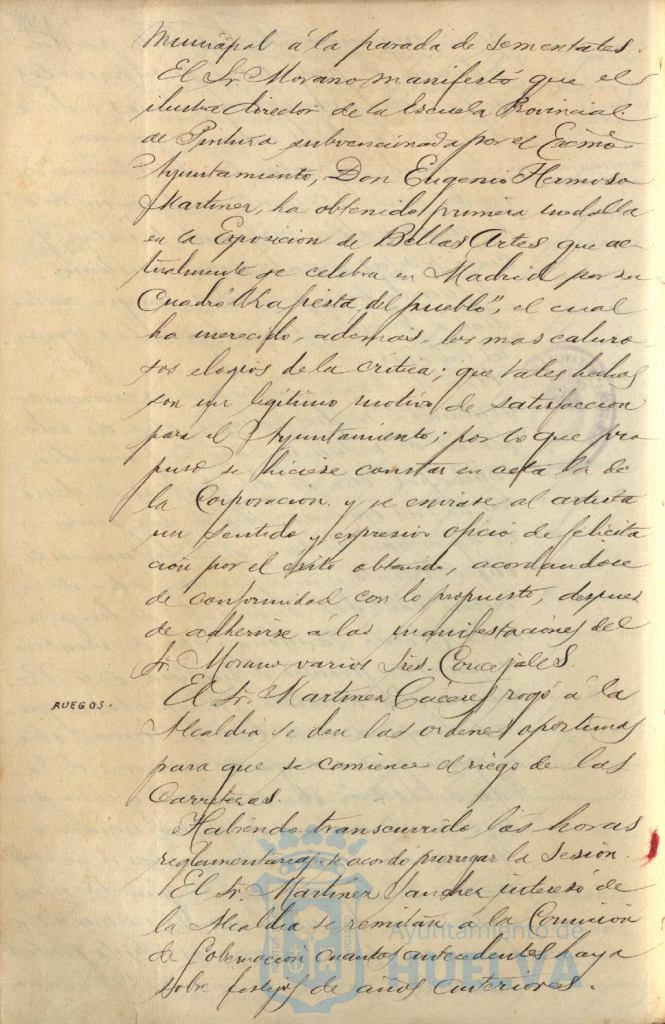 Municipal á la parada de sementales.
El Sr. Morano manifestó que el
ilustre director de la Escuela Provincial
de Pintura subvencionada por el Excmo.
Ayuntamiento, Don Eugenio Hermoso
Martinez, ha obtenido primera medalla
en la Exposicion de Bellas Artes que ac-
tualmente se celebra en Madrid por su
Cuadro "La fiesta del pueblo", el cual
ha merecido, ademas, los mas caluro
sos elogios de la crítica; que tales hechos
son un legítimo motivo de satisfaccion
para el Ayuntamiento; por lo que pro
puso se hiciese constar en acta la de
la Corporacion y se enviase al artista
un sentido y expresivo oficio de felicita
ción por el éxito obtenido, acordandose
de conformidad con lo propuesto, despues
de adherirse á las manifestaciones del
Sr. Morano varios Sres. Concejales.
RUEGOS.
El Sr. Martinez Caceres rogó á la
Alcaldia se den las ordenes oportunas
para que se comience el riego de las
Carreteras.
Habiendo transcurrido las horas
reglamentarias se acordó prorrogar la Sesion.
El Sr. Martinez Sanchez interesó de
la Alcaldia se remitan á la Comision
de Gobernacion cuantos antecedentes haya
sobre festejos de años anteriores.
Ayuntamiento de
HUELVA